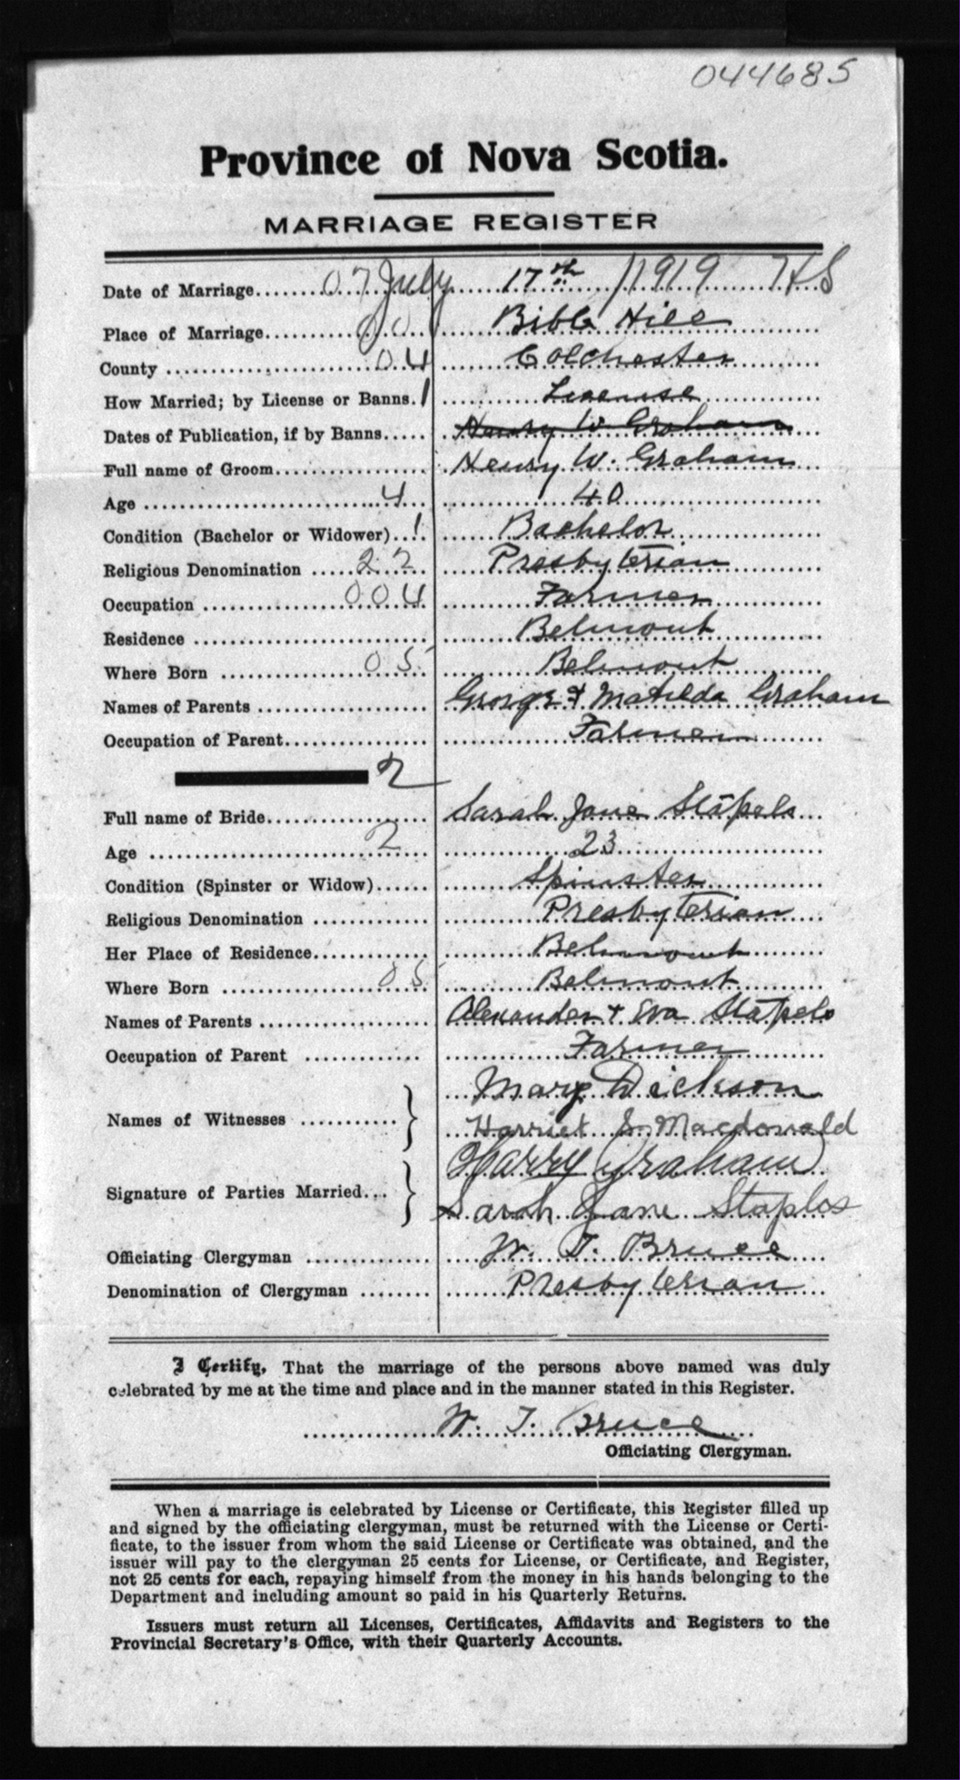 044685
Province of Nova Scotia.
MARRIAGE REGISTER
Date of Marriage 07 July 17th 1919
Place of Marriage 00 Bible Hill
County 04 Colchester
How Married; by License or Banns. 1 License
Dates of Publication, if by Banns Henry W Graham
Full name of Groom Henry W. Graham
Age 4 40
Condition (Bachelor or Widower) 1 Bachelor
Religious Denomination 22 Presbyterian
Occupation 004 Farmer
Residence Belmont
Where Born 05 Belmont
Names of Parents George & Matilda Graham
Occupation of Parent Farmer
2
Full name of Bride Sarah Jane Stapels
Age 2 23
Condition (Spinster or Widow) Spinster
Religious Denomination Presbyterian
Her Place of Residence Belmont
Where Born 05 Belmont
Names of Parents Alexander + Eva Stapels
Occupation of Parent Farmer
Names of Witnesses } Mary Dickson
Harriet Macdonald
Signature of Parties Married } Harry Graham
Sarah Jane Staples
Officiating Clergyman W. T. Bruce
Denomination of Clergyman Presbyterian
I Certify, That the marriage of the persons above named was duly
celebrated by me at the time and place and in the manner stated in this Register.
W. T. Bruce
Officiating Clergyman.
When a marriage is celebrated by License or Certificate, this Register filled up
and signed by the officiating clergyman, must be returned with the License or Certi-
ficate, to the issuer from whom the said License or Certificate was obtained, and the
issuer will pay to the clergyman 25 cents for License, or Certificate, and Register,
not 25 cents for each, repaying himself from the money in his hands belonging to the
Department and including amount so paid in his Quarterly Returns.
Issuers must return all Licenses, Certificates, Affidavits and Registers to the
Provincial Secretary's Office, with their Quarterly Accounts.